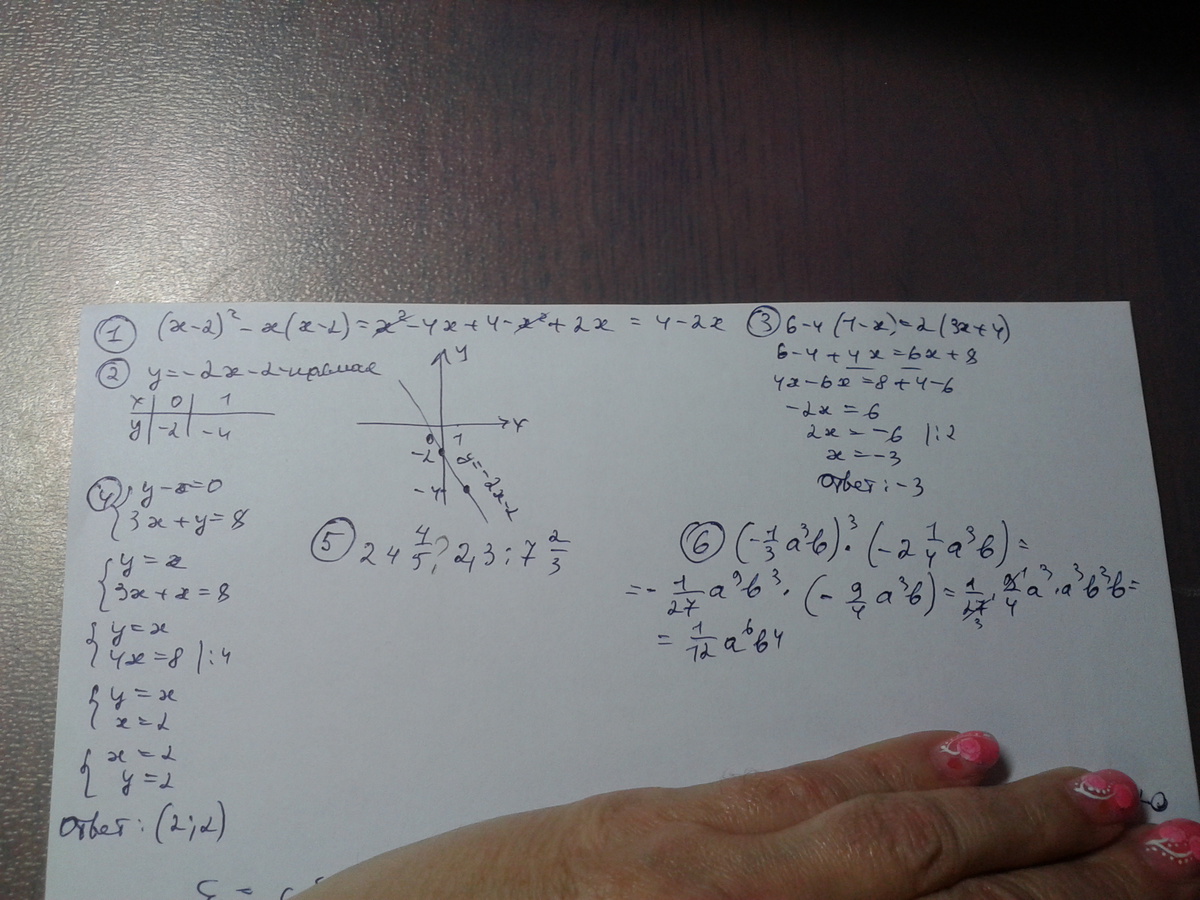 ① (x-2)² - x(x-2) = x² - 4x + 4 - x² + 2x = 4 - 2x
② y = -2x - 2 - прямая
x | 0 | 1
y | -2 | -4
y
x
0 1
-2
-4
③ 6 - 4(1 - x) = 2(3x + 4)
6 - 4 + 4x = 6x + 8
4x - 6x = 8 + 4 - 6
-2x = 6
2x = -6 |:2
x = -3
Ответ: -3
④ { y - x = 0
3x + y = 8
{ y = x
3x + x = 8
{ y = x
4x = 8 |:4
{ y = x
x = 2
{ x = 2
y = 2
Ответ: (2;2)
⑤ 24 4/5 ; 2,3 : 7 2/3
⑥ (-1/3 a³b)³ · (-2 1/4 a³b) =
= -1/27 a⁹b³ · (-9/4 a³b) = 1/27 · 9/4 a³ · a³b³b =
= 1/12 a⁶b⁴